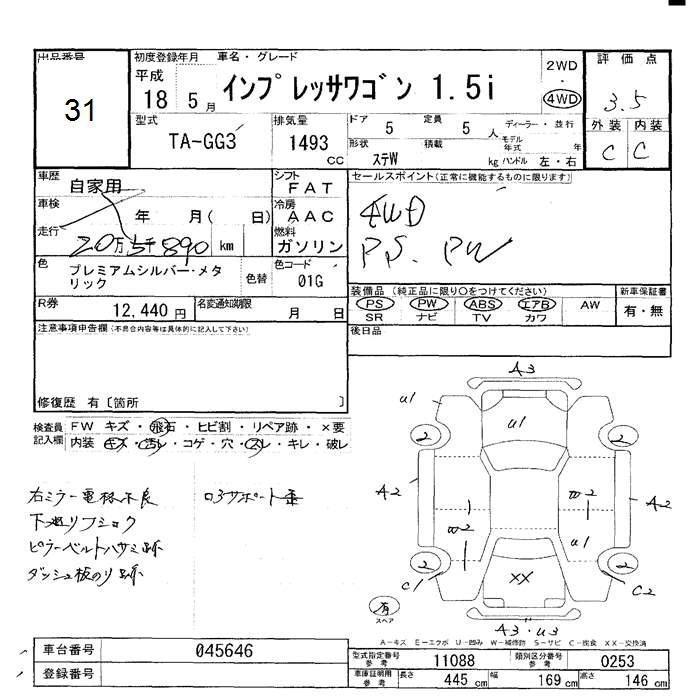 出品番号
31
初度登録年月 車名・グレード
平成 18 5月
インプレッサワゴン 1.5i
2WD
・
4WD
評価点
3.5
外装 内装
C C
型式
TA-GG3
排気量
1493 CC
ドア 5 定員 5 人
形状 ステW 積載 kg
ディーラー・並行
モデル年式 年
ハンドル 左・右
車歴 自家用
シフト FAT
車検 年 月( 日)
冷房 AAC
走行 20万5千890 km
燃料 ガソリン
色 プレミアムシルバー・メタリック
色替
色コード 01G
R券 12,440円
名変通知期限 月 日
セールスポイント(正常に機能するものに限ります)
4WD
PS. PW
装備品(純正品に限り○をつけてください)
PS PW ABS エアB AW
SR ナビ TV カワ
新車保証書
有・無
後日品
注意事項申告欄(不具合内容等は具体的に記入して下さい)
修復歴 有〔箇所 〕
検査員記入欄
FW キズ・飛石・ヒビ割・リペア跡・×要
内装 キズ・汚レ・コゲ・穴・スレ・キレ・破レ
右ミラー電格不良
下廻リフショク
ピラーベルトハサミ跡
ダッシュ板のり跡
ロアサポート歪
A3
u1
u1
2 2
A2
A2
W2
W2
u1
2 2
C1
C2
XX
A3・u3
有
スペア
A-キズ E-エクボ U-凹み W-補修跡 S-サビ C-腐食 XX-交換済
車台番号 045646
登録番号
型式指定番号 参考 11088
類別区分番号 参考 0253
車庫証明用 参考 長さ 445 cm 幅 169 cm 高さ 146 cm